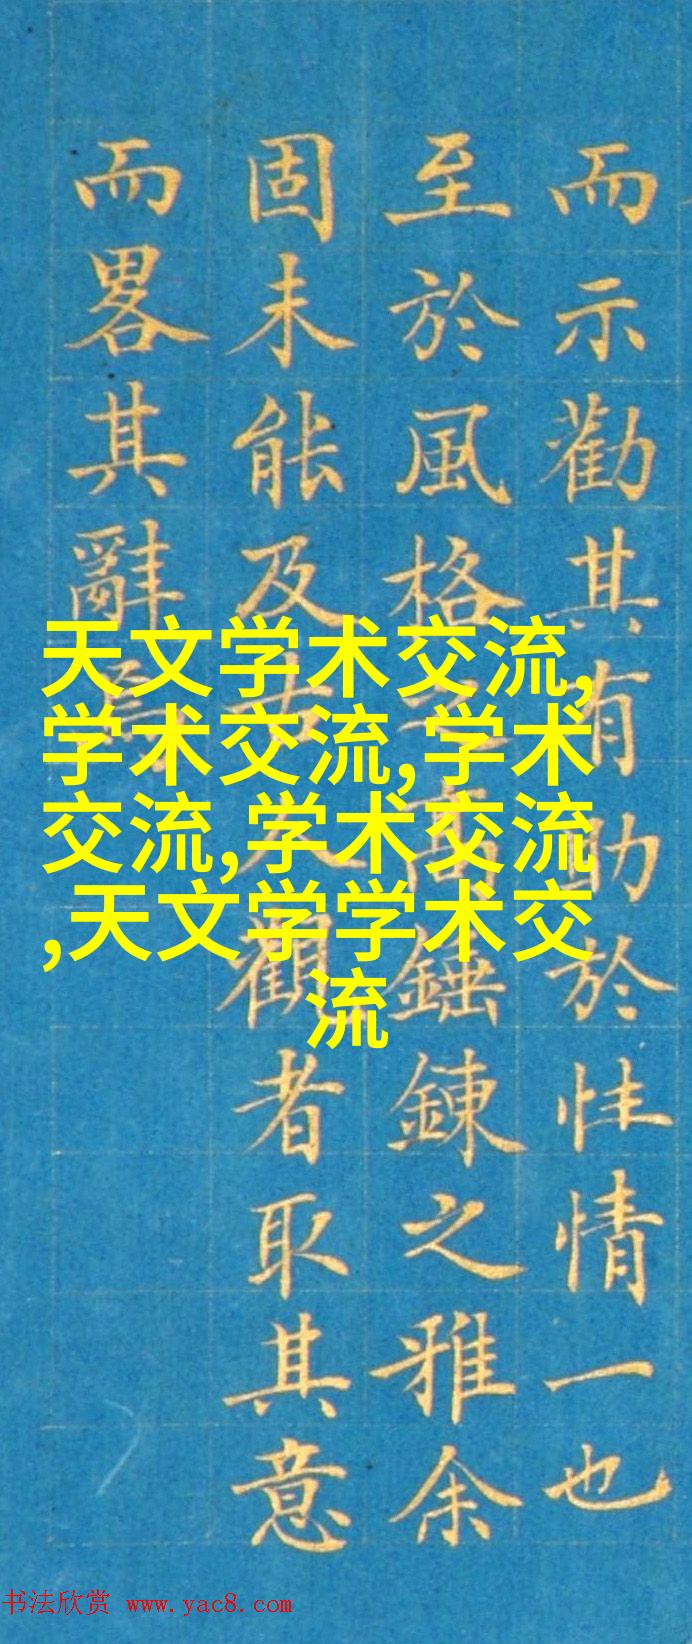 而示勸其有助於性情一也
至於風格之高錘鍊之雅余
固未能及古人觀者取其意
而畧其辭焉
天文学术交流,
学术交流,学术
交流,学术交流
,天文学学术交
流
书法欣赏 www.yac8.com